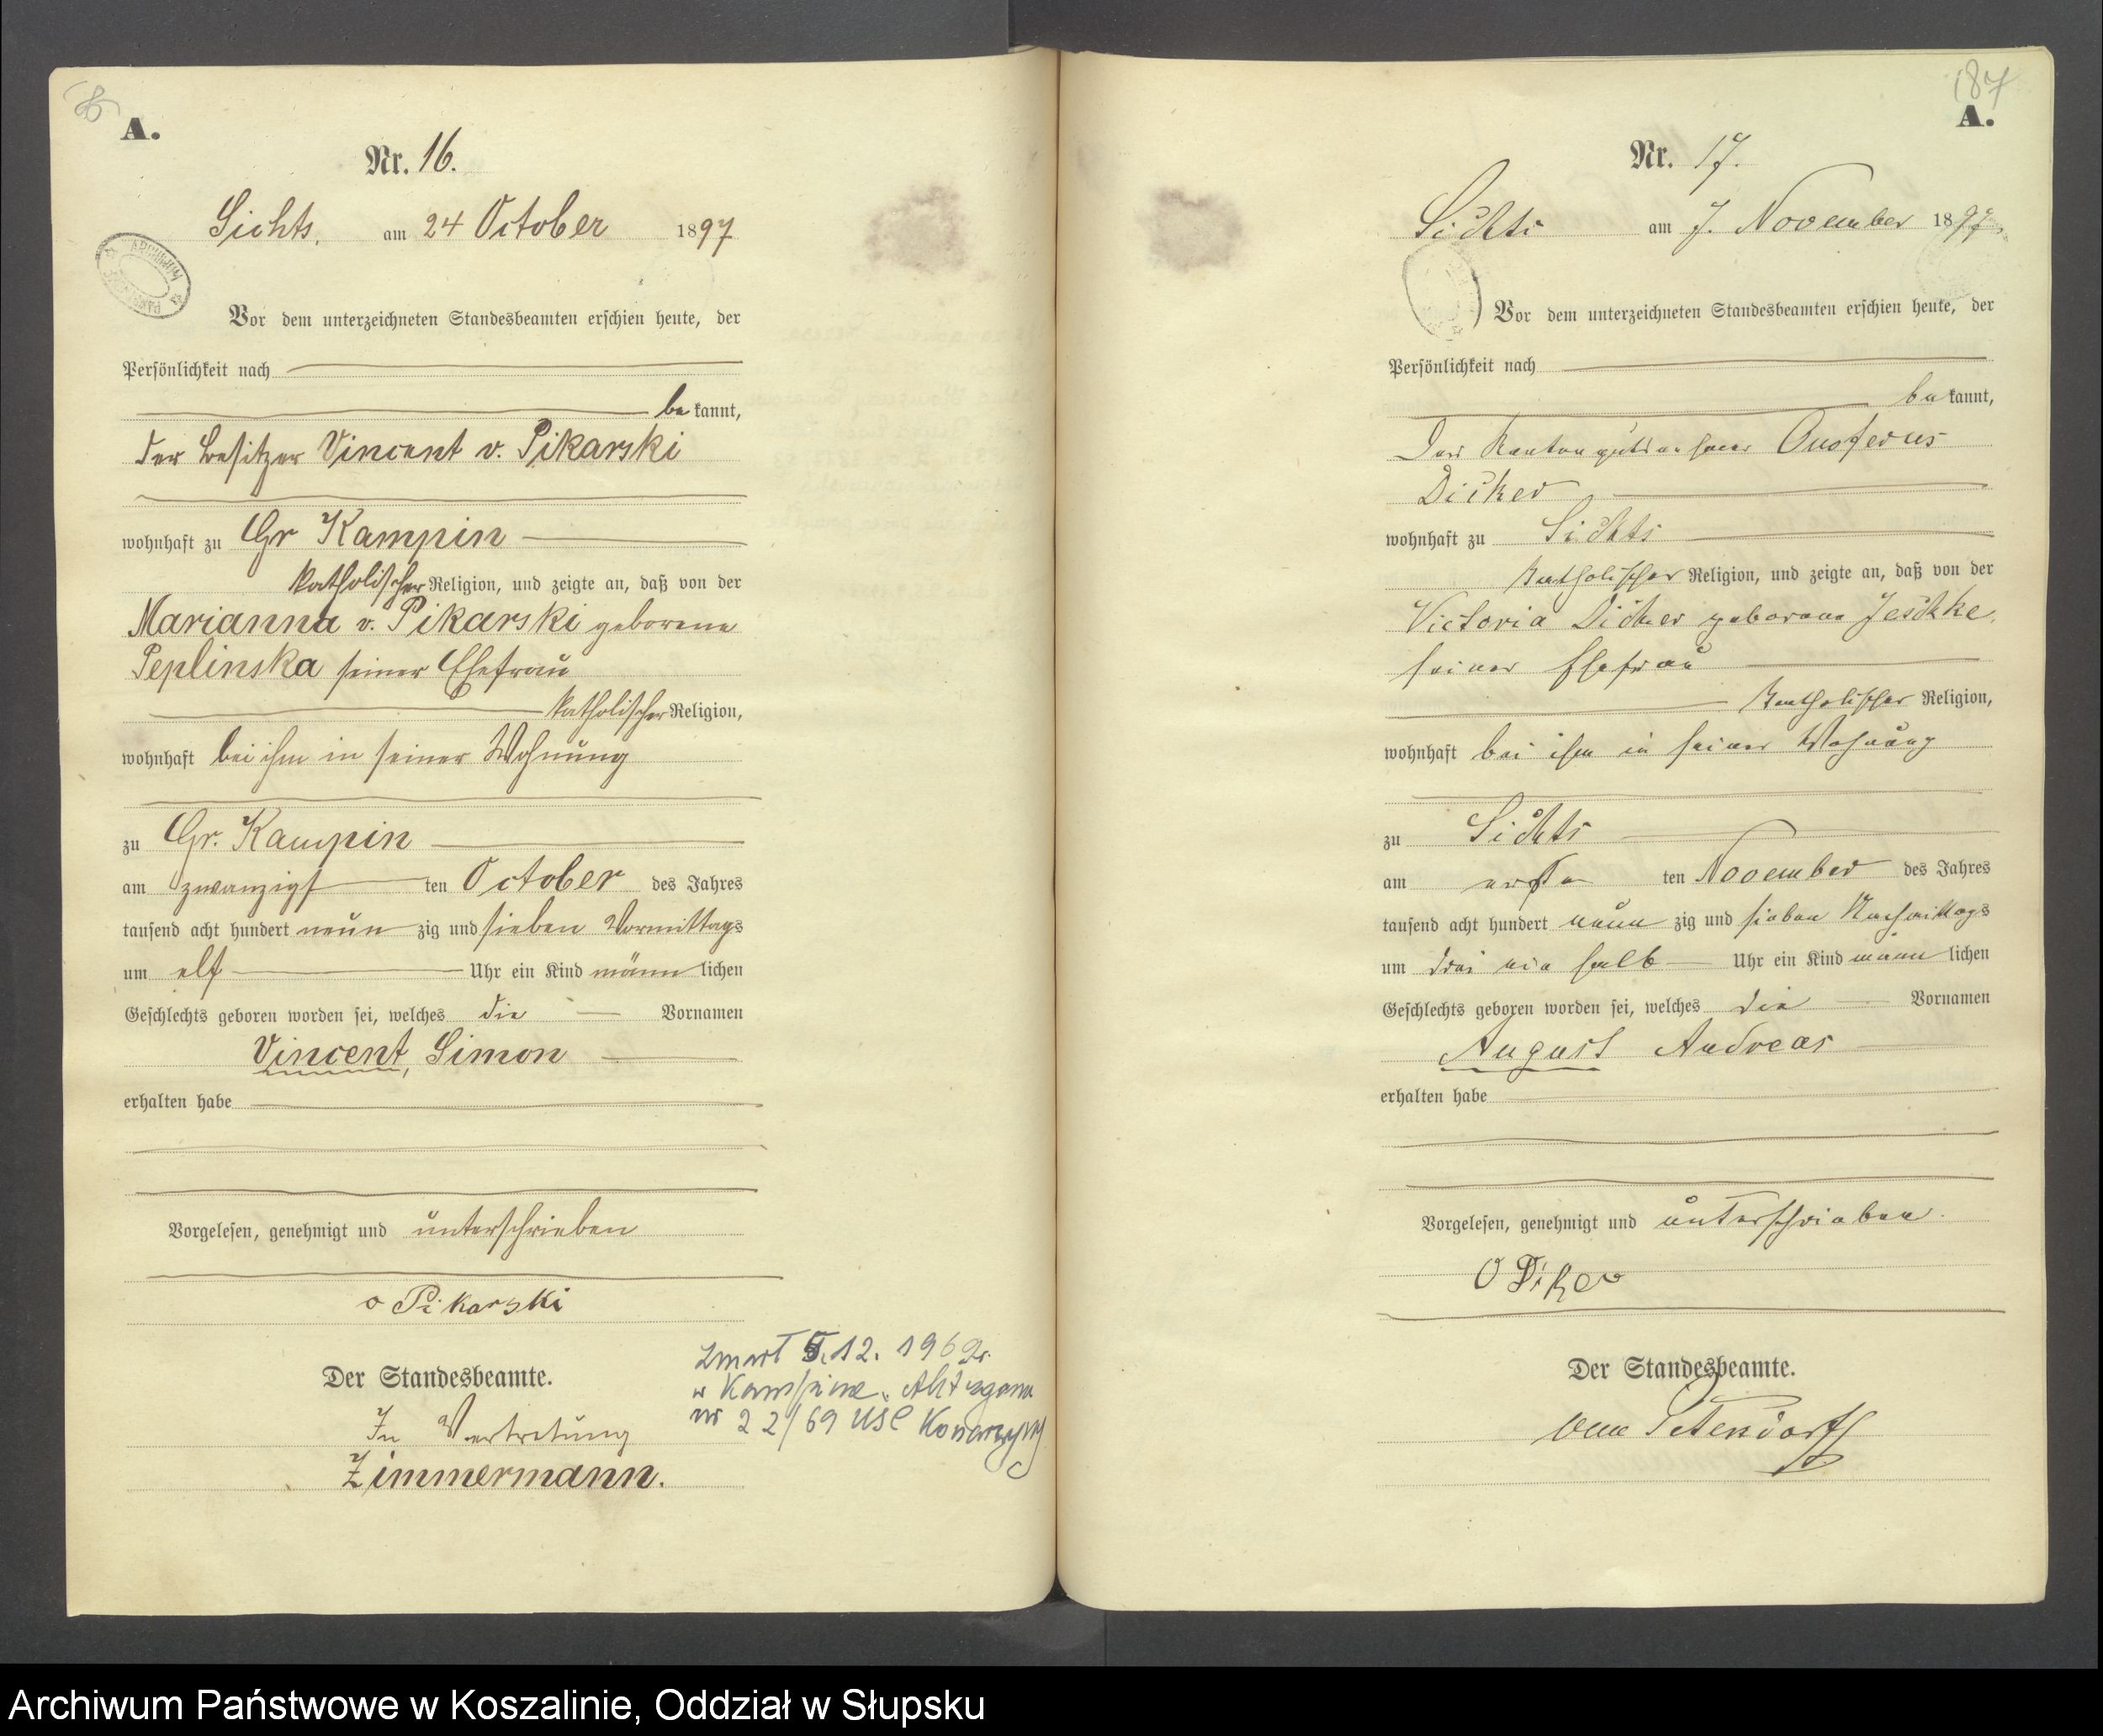 A.
Nr. 16.
Sichts, am 24 October 1897
Vor dem unterzeichneten Standesbeamten erschien heute, der
Persönlichkeit nach
bekannt,
der Besitzer Vincent v. Pikarski
wohnhaft zu Gr Kampin
katholischer Religion, und zeigte an, daß von der
Marianna v. Pikarski geborene
Peplinska seiner Ehefrau
katholischer Religion,
wohnhaft bei ihm in seiner Wohnung
zu Gr. Kampin
am zwanzigsten October des Jahres
tausend acht hundert neunzig und sieben Vormittags
um elf Uhr ein Kind männlichen
Geschlechts geboren worden sei, welches die Vornamen
Vincent, Simon
erhalten habe
Vorgelesen, genehmigt und unterschrieben
v Pikarski
Der Standesbeamte.
In Vertretung
Zimmermann.
zmarł 5.12.1969r.
w Kampinie. Akt zgonu
nr 22/69 USC Konarzyny
187
A.
Nr. 17.
Sichts am 7. November 1897
Vor dem unterzeichneten Standesbeamten erschien heute, der
Persönlichkeit nach
bekannt,
Der Rentengutsnehmer Onoferus
Dicker
wohnhaft zu Sichts
katholischer Religion, und zeigte an, daß von der
Victoria Dicker geborene Jeschke,
seiner Ehefrau
katholischer Religion,
wohnhaft bei ihm in seiner Wohnung
zu Sichts
am ersten November des Jahres
tausend acht hundert neunzig und sieben Nachmittags
um drei ein halb Uhr ein Kind männlichen
Geschlechts geboren worden sei, welches die Vornamen
August Andreas
erhalten habe
Vorgelesen, genehmigt und unterschrieben.
O Diker
Der Standesbeamte.
Archiwum Państwowe w Koszalinie, Oddział w Słupsku